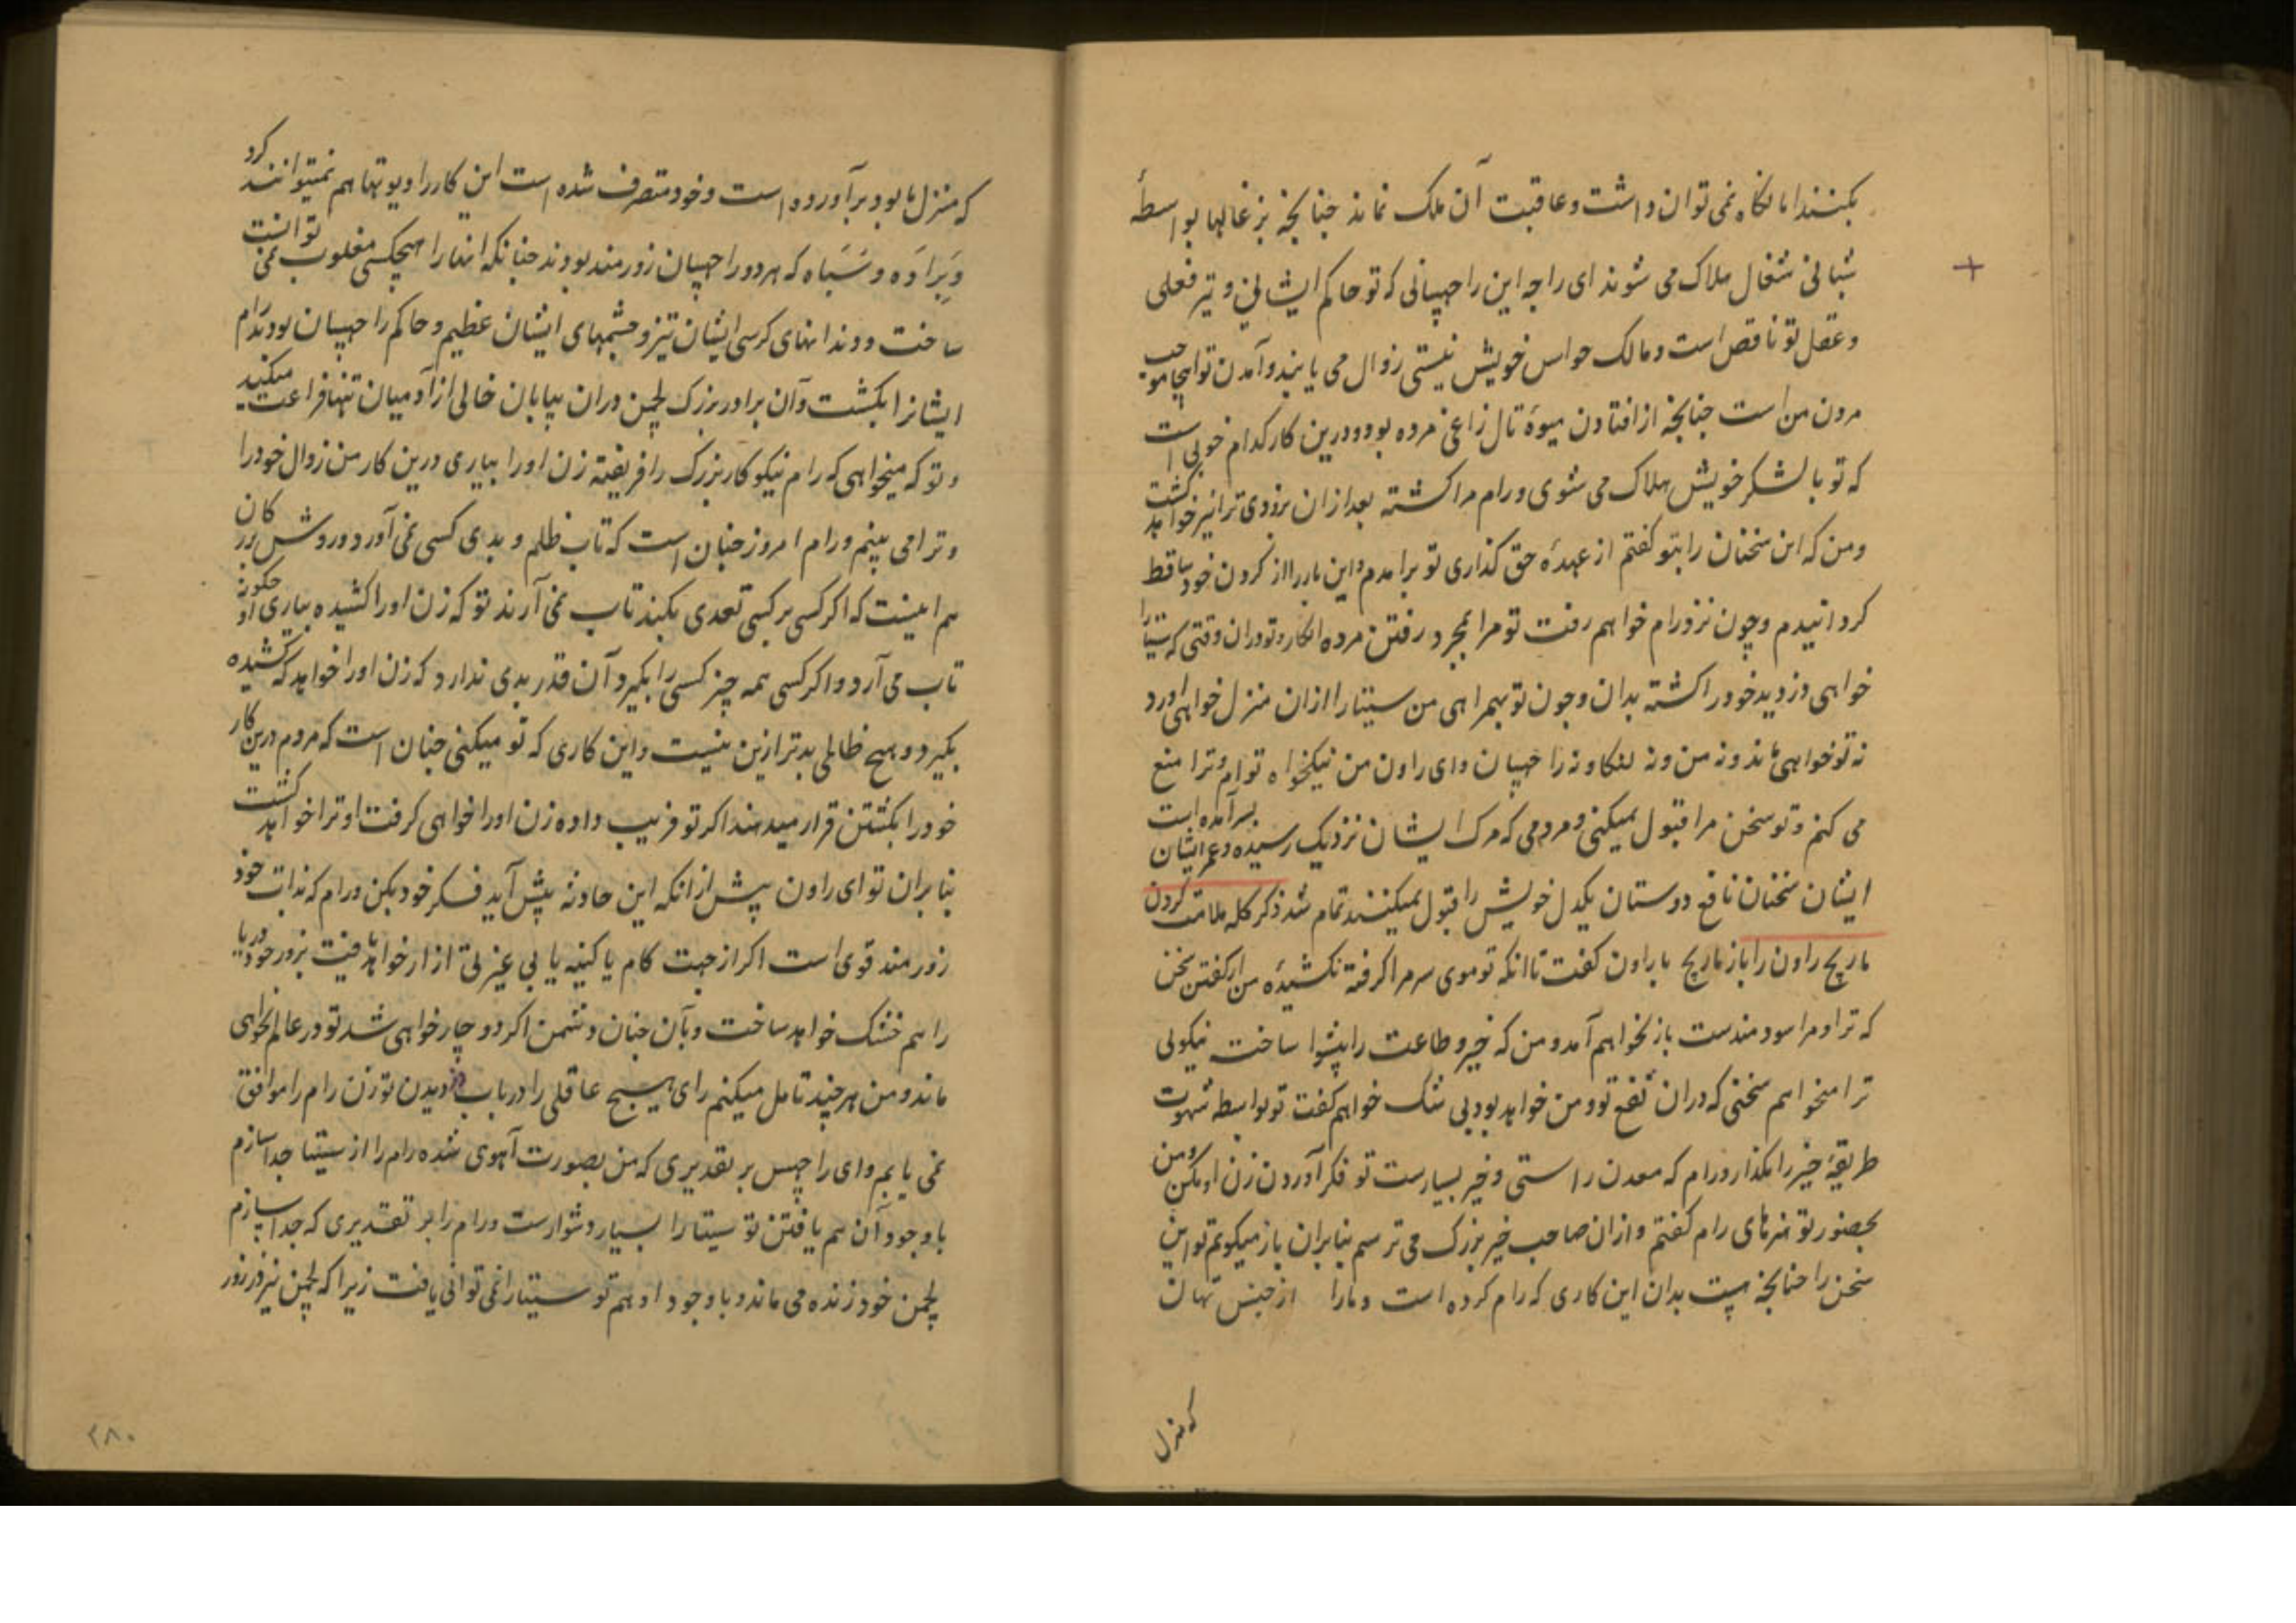 بکنند اما نگاه نمی توان داشت و عاقبت آن ملک نماند چنانچه بزغالها بواسطهٔ
شبانی شغال هلاک می شوند ای راجه این راچهسانی که تو حاکم ایشانی و تیز فعلی
و عقل تو ناقص است و مالک حواس خویش نیستی زوال می یابند و آمدن تو اینجا موجب
مردن من است چنانچه از افتادن میوهٔ تال زاغی مرده بود و درین کار کدام خوبی است
که تو با لشکر خویش هلاک می شوی و رام مرا کشته بعد ازان بزودی ترا نیز خواهد کشت
و من که این سخنان را بتو گفتم از عهدهٔ حق گذاری تو برآمدم و این بار را از گردن خود ساقط
گردانیدم و چون نزد رام خواهم رفت تو مرا بمجرد رفتن مرده انگار و تو دران وقتی که سیتا را
خواهی دزدید خود را کشته بدان و چون تو بهمراهی من سیتا را ازان منزل خواهی آورد
نه تو خواهی ماند و نه من و نه لنکا و نه راچهسان و ای راون من نیکخواه توام و ترا منع
می کنم و تو سخن مرا قبول نمیکنی و مردمی که مرگ ایشان نزدیک رسیده و عمر ایشان بسر آمده است
ایشان سخنان نافع دوستان یکدل خویش را قبول نمیکنند تمام شد ذکر کله ملامت کردن
ماریچ راون را باز ماریچ با راون گفت تا انکه تو موی سر مرا گرفته نکشیدهٔ من از گفتن سخن
که ترا و مرا سودمندست باز نخواهم آمد و من که خیر و طاعت را پیشوا ساخت نیکوئی
ترا میخواهم سخنی که دران نفع تو و من خواهد بود بی شک خواهم گفت تو بواسطه شهوت
طریقهٔ خیر را مگذار و رام که معدن راستی و خیر بسیارست تو فکر آوردن زن او مکن و من
بحضور تو هنرهای رام گفتم و ازان صاحب خیر بزرگ می ترسم بنابران باز میگویم تو این
سخن را چنانچه هست بدان این کاری که رام کرده است و مارا از جنس تهان
که منزل
که منزل ما بود برآورده است و خود متصرف شده است این کار را دیوتها هم نمیتوانند کرد
و براده و سباه که هر دو راچهسان زورمند بودند چنانکه انها را هیچکس مغلوب نمی توانست
ساخت و دندانهای کرسی ایشان تیز و چشمهای ایشان عظیم و حاکم راچهسان بودند رام
ایشانرا بکشت و آن برادر بزرگ لچمن دران بیابان خالی از آدمیان تنها فراغت میکند
و تو که میخواهی که رام نیکو کار بزرگ را فریفته زن او را بیاری درین کار من زوال خود را
و ترا می بینم و رام امروز چنان است که تاب ظلم و بدی کسی نمی آورد و روش بزرکان
هم اینست که اگر کسی بر کسی تعدی بکند تاب نمی آرند تو که زن او را کشیده بیاری او چگونه
تاب می آرد و اگر کسی همه چیز کسی را بگیرد آن قدر بدی ندارد که زن او را خواهد که کشیده
بگیرد و هیچ ظالمی بدتر ازین نیست و این کاری که تو میکنی چنان است که مردم درین کار
خود را بکشتن قرار میدهند اگر تو فریب داده زن او را خواهی گرفت او ترا خواهد کشت
بنابران تو ای راون پیش از انکه این حادثه پیش آید فکر خود بکن و رام که بذات خود
زورمند قوی است اگر از جهت کام یا کینه یا بی عزتی ازار خواهد یافت بزور خود دریا
را هم خشک خواهد ساخت و بآن چنان دشمن اگر دوچار خواهی شد تو در عالم نخواهی
ماند و من هر چند تامل میکنم رای هیچ عاقلی را در باب دزدیدن تو زن رام را موافق
نمی یابم و ای راچهس بر تقدیری که من بصورت آهوی شده رام را از سیتا جدا سازم
با وجود آن هم یافتن تو سیتا را بسیار دشوارست و رام را بر تقدیری که جدا سازم
لچمن خود زنده می ماند و با وجود او هم تو سیتا را نمی توانی یافت زیرا که لچمن نیز در زور
۲۸۰